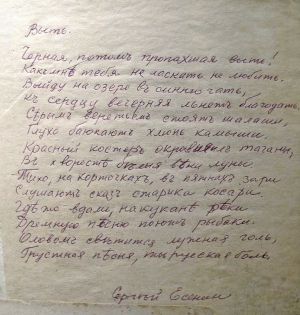 Выть.
Черная, потомъ пропахшая выть!
Какъ мнѣ тебя не ласкать не любить.
Выйду на озеро въ синюю гать,
Къ сердцу вечерняя льнетъ благодать.
Сѣрымъ веретьемъ стоятъ шалаши,
Глухо баюкаютъ хлюпь камыши
Красный костеръ окровилъ таганы,
Въ хворостѣ бѣлыя вѣки луны
Тихо, на корточкахъ, въ пятнахъ зари
Слушаютъ сказъ старика косари.
Гдѣ то вдали, на кукане рѣки
Дремную пѣсню поютъ рыбаки.
Оловомъ свѣтится лужная голь,
Грустная пѣсня, ты русская боль.
Сергѣй Есенин